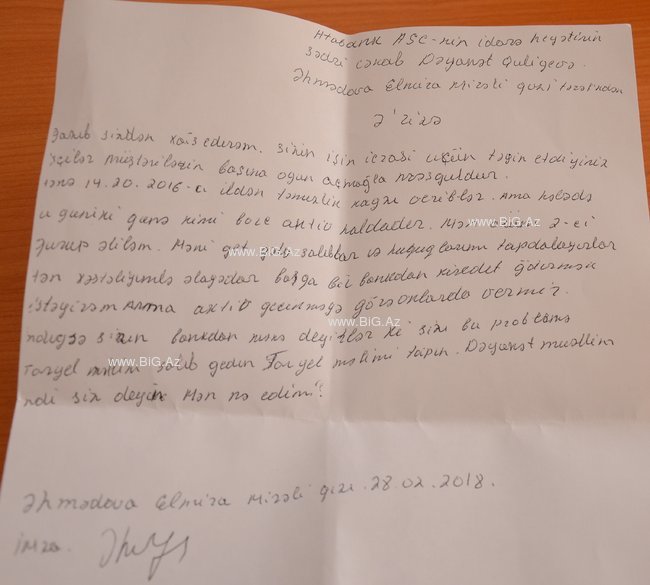 Atabank ASC-nin idarə heyətinin
sədri cənab Dəyanət Quliyevə.
Əhmədova Elmira Mirəli qızı tərəfindən
Ə'rizə
Yazıb sizdən xais edirəm. Sizin işin icrasi üçün təyin etdiyiniz
işcilər müştərilərin başına oyun açmaqla məşğuldur.
14.20.2016-cı ildən təmizlik kağızı veriblər. Ama hələdə
u gunki gunə kimi borc aktiv qaldadır. Mən 2-ci
qurup əliləm. Məni get gələ salıblar və huquqlarımı tapdalayırlar
xəstəliyimlə əlaqədar başqa bir bankdan kiredet götürmək
istəyirəm Amma aktiv gecinməyə görə onlarda vermir.
sizin bankdan mənə deyirlər ki sizi bu problemə
Taryel məlim salıb gedin Taryel məlimi tapın. Dəyanət muəllim
ndi siz deyin mən nə edim?
Əhmədova Elmira Mirəli qızı. 28.02.2018.
imza.
www.BiG.Az
www.BiG.Az
www.BiG.Az
www.BiG.Az